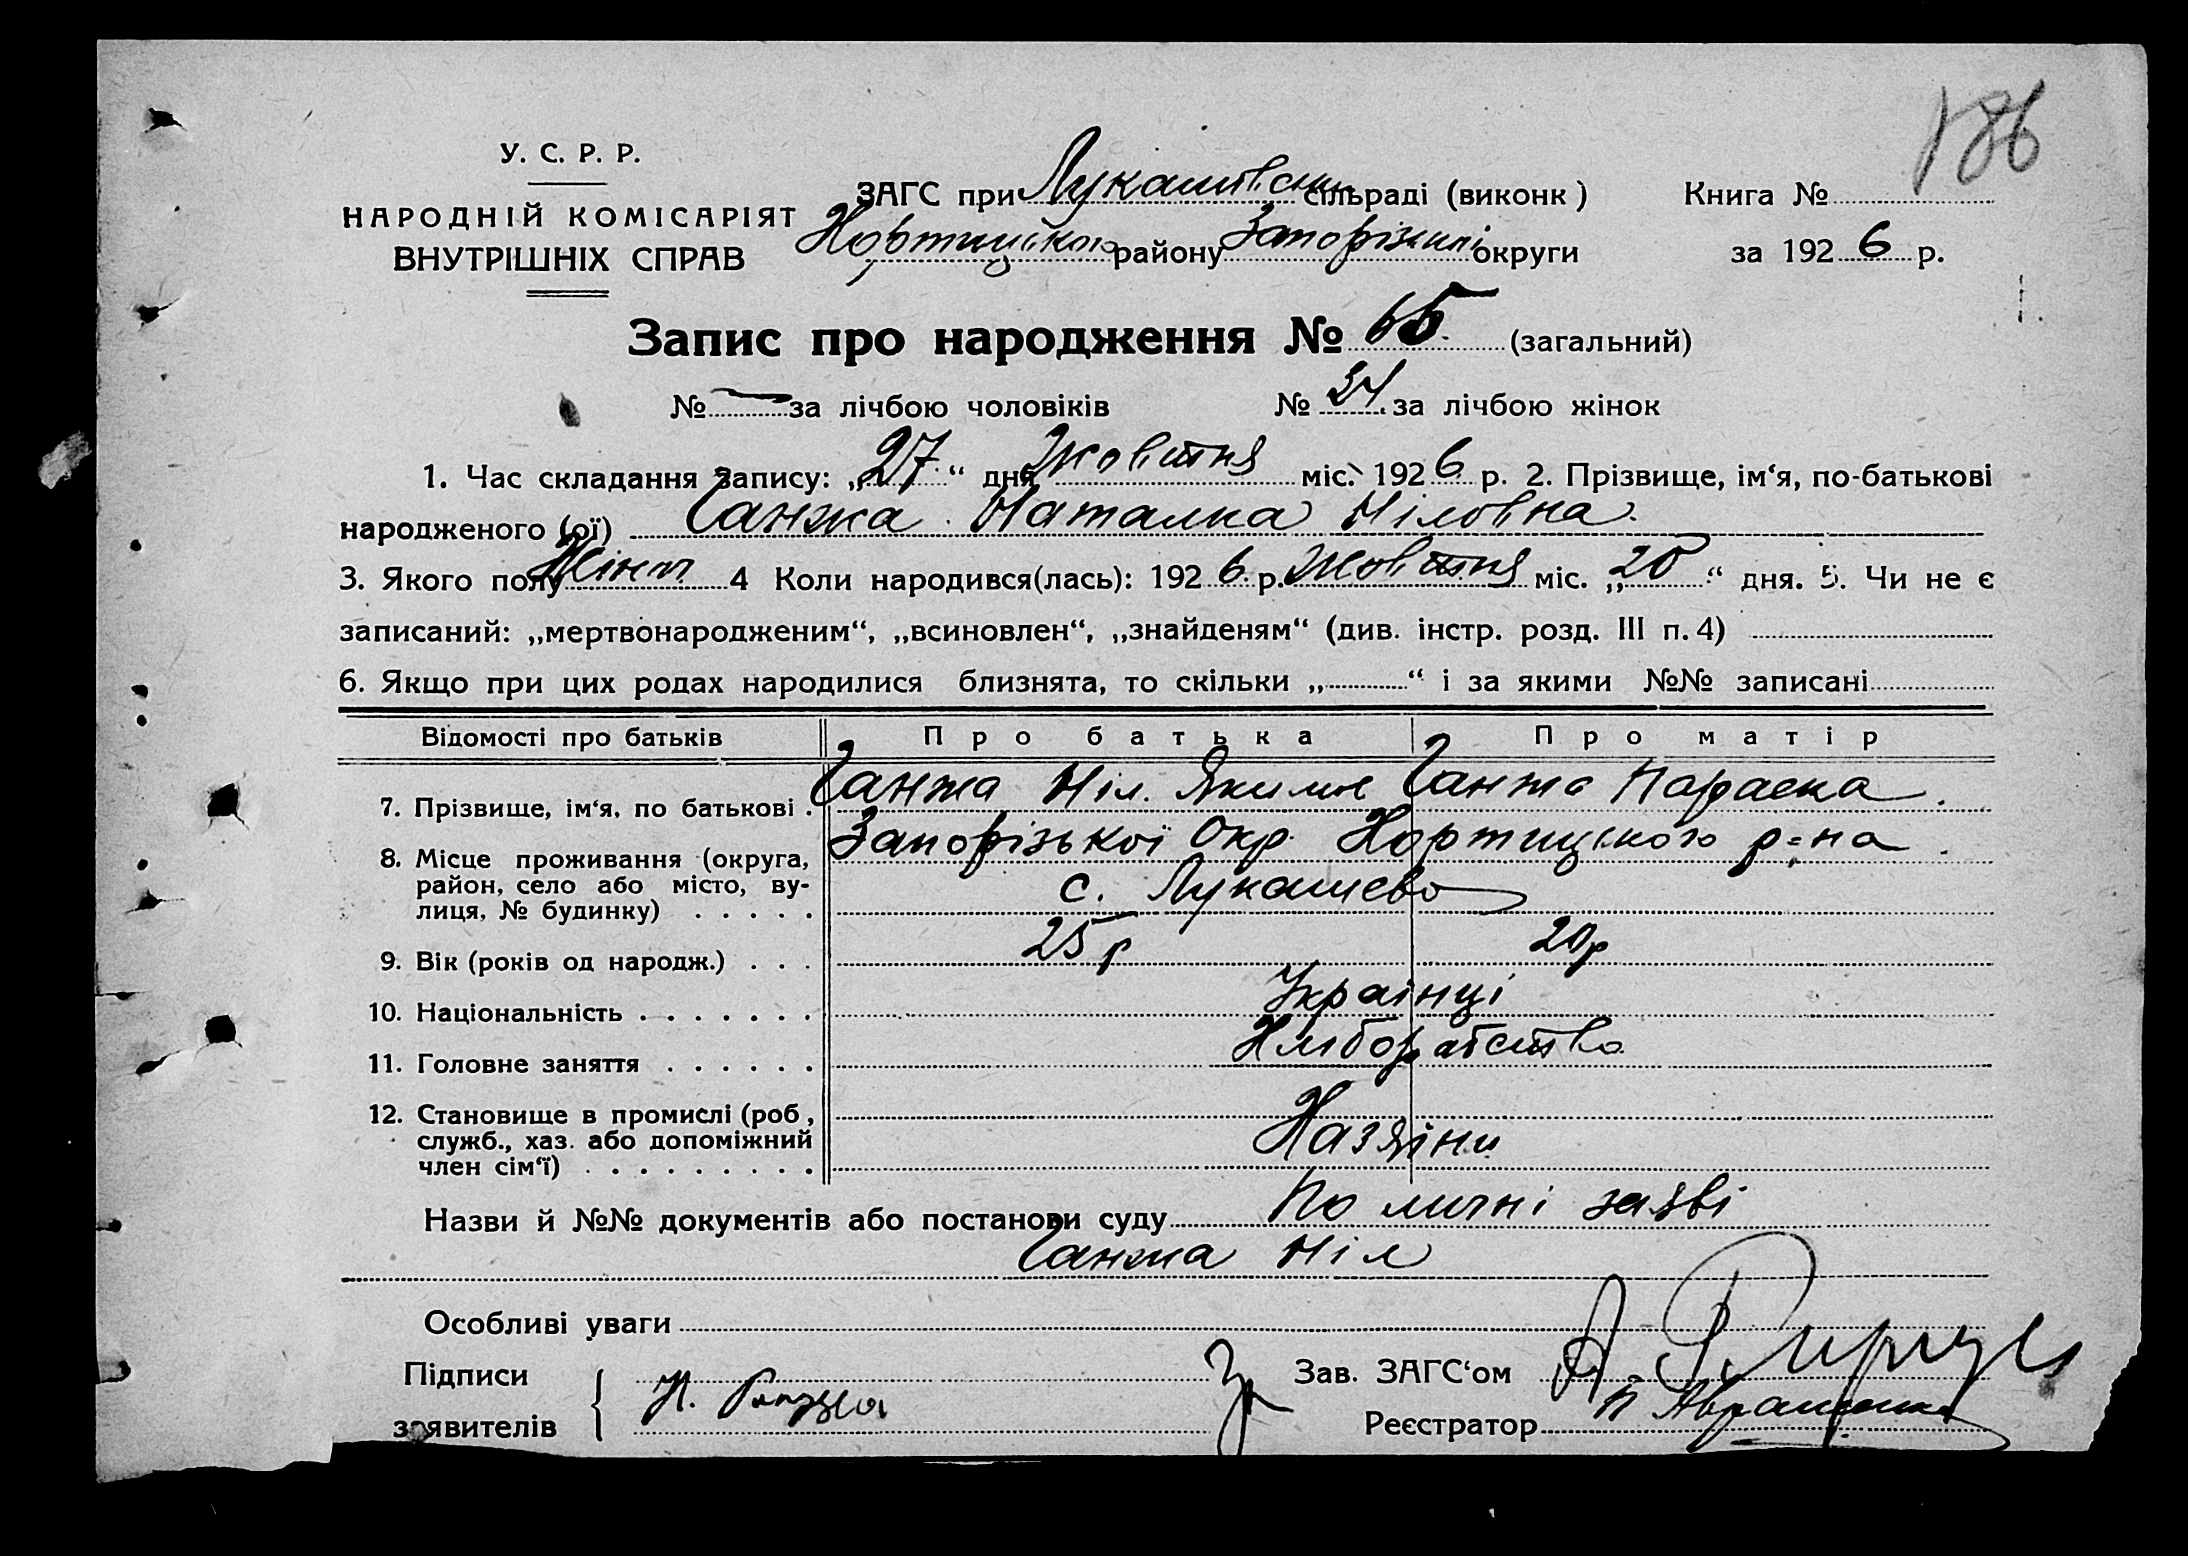 186
У. С. Р. Р.
НАРОДНІЙ КОМІСАРІЯТ
ВНУТРІШНІХ СПРАВ
ЗАГС при Лукашівські сільраді (виконк) Книга №
Хортицького району Запорізької округи за 1926 р.
Запис про народження № 65 (загальний)
№ — за лічбою чоловіків № 34 за лічбою жінок
1. Час складання запису: „27“ дня Жовтня міс. 1926 р. 2. Прізвище, ім‘я, по-батькові
народженого (ої) Ганжа Наталка Ніловна.
3. Якого полу Жіноч. 4 Коли народився(лась): 1926 р. Жовтня міс. „25“ дня. 5. Чи не є
записаний: „мертвонародженим“, „всиновлен“, „знайденям“ (див. інстр. розд. III п. 4)
6. Якщо при цих родах народилися близнята, то скільки „ “ і за якими №№ записані
Відомості про батьків Про батька Про матір
7. Прізвище, ім‘я, по батькові . Ганжа Ніл. Якимов Ганжа Параска.
8. Місце проживання (округа, район, село або місто, вулиця, № будинку) Запорізької Окр. Хортицького р-на
с. Лукашево
9. Вік (років од народж.) . . . 25 р 20 р
10. Національність . . . . . . . Українці
11. Головне заняття . . . . . . Хліборобство
12. Становище в промислі (роб, служб., хаз. або допоміжний член сім‘ї) Хазяїни
Назви й №№ документів або постанови суду По личні заяві
Ганжа Ніл
Особливі уваги
Підписи
заявителів Н. Ганжа
Зав. ЗАГС‘ом
Реєстратор